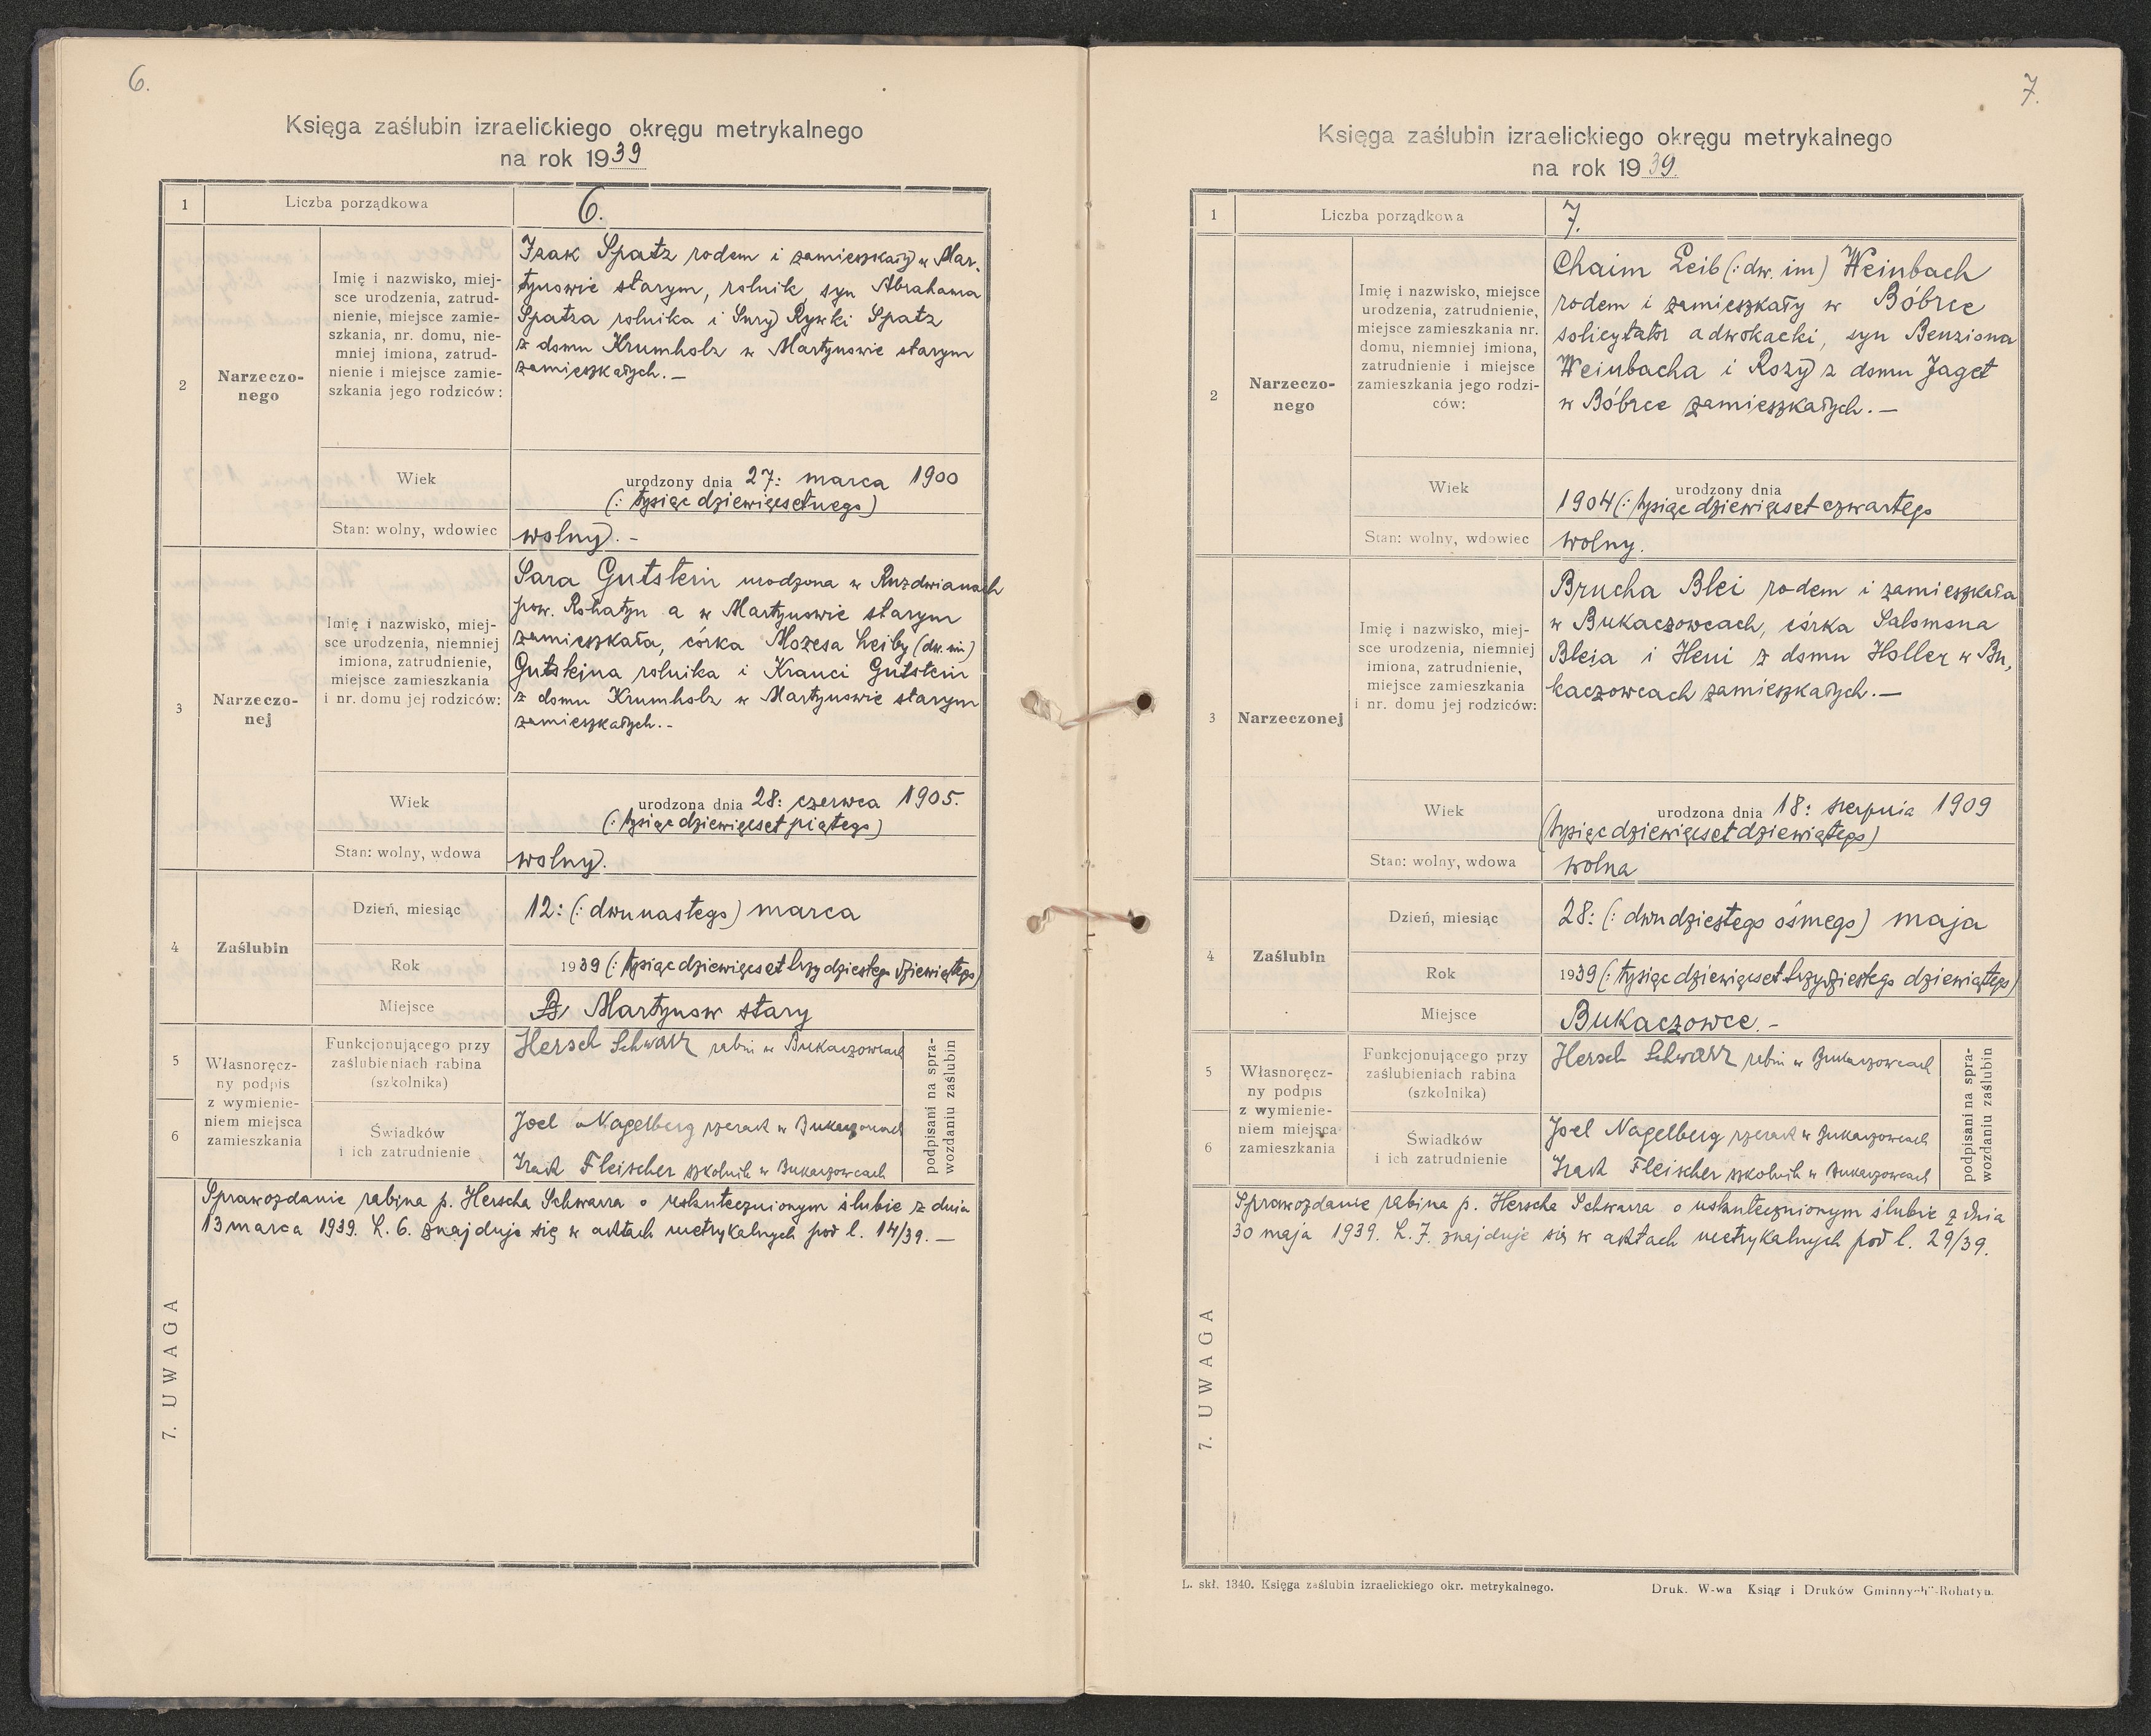 6.
Księga zaślubin izraelickiego okręgu metrykalnego
na rok 1939
1
Liczba porządkowa
6.
2
Narzeczo-
nego
Imię i nazwisko, miej-
sce urodzenia, zatrud-
nienie, miejsce zamie-
szkania, nr. domu, nie-
mniej imiona, zatrud-
nienie i miejsce zamie-
szkania jego rodziców:
Izak Spatz rodem i zamieszkały w Mar-
tynowie starym, rolnik, syn Abrahama
Spatza rolnika i Sury Rywki Spatz
z domu Krumholz w Martynowie starym
zamieszkałych. —
Wiek
urodzony dnia 27: marca 1900
(: tysiąc dziewięćsetnego)
Stan: wolny, wdowiec
wolny. -
3
Narzeczo-
nej
Imię i nazwisko, miej-
sce urodzenia, niemniej
imiona, zatrudnienie,
miejsce zamieszkania
i nr. domu jej rodziców:
Sara Gutstein urodzona w Ruzdwianach
pow. Rohatyn a w Martynowie starym
zamieszkała, córka Mozesa Leiby (dw. im)
Gutsteina rolnika i Kranci Gutstein
z domu Krumholz w Martynowie starym
zamieszkałych. -
Wiek
urodzona dnia 28: czerwca 1905.
(: tysiąc dziewięćset piątego)
Stan: wolny, wdowa
wolny.
4
Zaślubin
Dzień, miesiąc
12: (: dwunastego) marca
Rok
1939 (: tysiąc dziewięćset trzydziestego dziewiątego)
Miejsce
Martynow stary
5
6
Własnoręcz-
ny podpis
z wymienie-
niem miejsca
zamieszkania
Funkcjonującego przy
zaślubieniach rabina
(szkolnika)
Hersch Schwarz rabin w Bukaczowcach
Świadków
i ich zatrudnienie
Joel Nagelberg rzezak w Bukaczowcach
Izak Fleischer szkolnik w Bukaczowcach
podpisani na spra-
wozdaniu zaślubin
7. UWAGA
Sprawozdanie rabina p. Herscha Schwarza o uskutecznionym ślubie z dnia
13 marca 1939. L. 6. znajduje się w aktach metrykalnych pod l. 14/39. —
7.
Księga zaślubin izraelickiego okręgu metrykalnego
na rok 1939.
1
Liczba porządkowa
7.
2
Narzeczo-
nego
Imię i nazwisko, miejsce
urodzenia, zatrudnienie,
miejsce zamieszkania nr.
domu, niemniej imiona,
zatrudnienie i miejsce
zamieszkania jego rodzi-
ców:
Chaim Leib (: dw. im) Weinbach
rodem i zamieszkały w Bóbrce
solicytator adwokacki, syn Benziona
Weinbacha i Rozy z domu Jaget
w Bóbrce zamieszkałych. —
Wiek
urodzony dnia
1904 (: tysiąc dziewięćset czwartego
Stan: wolny, wdowiec
wolny.
3
Narzeczonej
Imię i nazwisko, miej-
sce urodzenia, niemniej
imiona, zatrudnienie,
miejsce zamieszkania
i nr. domu jej rodziców:
Brucha Blei rodem i zamieszkała
w Bukaczowcach, córka Salomona
Bleia i Heni z domu Holler w Bu-
kaczowcach zamieszkałych. —
Wiek
urodzona dnia 18: sierpnia 1909
(tysiąc dziewięćset dziewiątego)
Stan: wolny, wdowa
wolna
4
Zaślubin
Dzień, miesiąc
28: (: dwudziestego ósmego) maja
Rok
1939 (: tysiąc dziewięćset trzydziestego dziewiątego)
Miejsce
Bukaczowce. -
5
6
Własnoręcz-
ny podpis
z wymienie-
niem miejsca
zamieszkania
Funkcjonującego przy
zaślubieniach rabina
(szkolnika)
Hersch Schwarz rabin w Bukaczowcach
Świadków
i ich zatrudnienie
Joel Nagelberg rzezak w Bukaczowcach
Izak Fleischer szkolnik w Bukaczowcach
podpisani na spra-
wozdaniu zaślubin
7. UWAGA
Sprawozdanie rabina p. Herscha Schwarza o uskutecznionym ślubie z dnia
30 maja 1939. L. 7. znajduje się w aktach metrykalnych pod l. 29/39.
L. skł. 1340. Księga zaślubin izraelickiego okr. metrykalnego.
Druk. W-wa Ksiąg i Druków Gminnych"-Rohatyn.